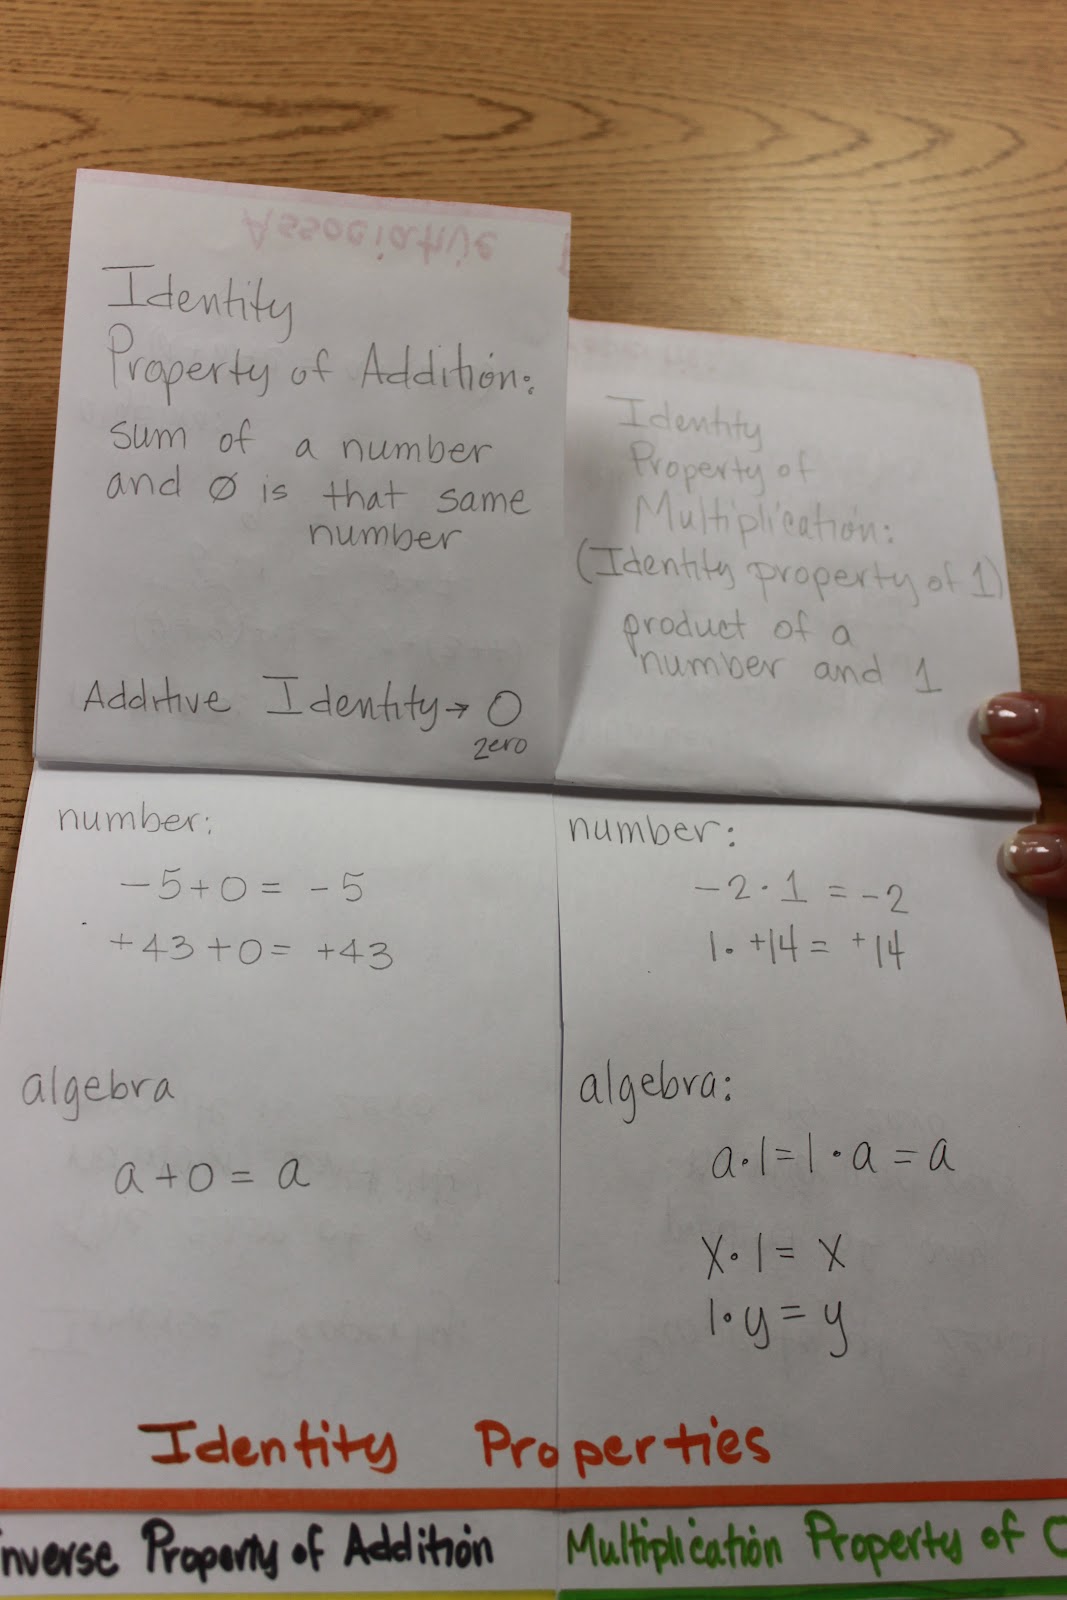 Associative
Identity
Property of Addition:
sum of a number
and 0 is that same
number
Additive Identity → 0
zero
Identity
Property of
Multiplication:
(Identity property of 1)
product of a
number and 1
number:
-5+0 = -5
+43+0= +43
algebra
a+0 = a
number:
-2·1 = -2
1·+14 = +14
algebra:
a·1=1·a=a
x·1= x
1·y=y
Identity Properties
nverse Property of Addition
Multiplication Property of